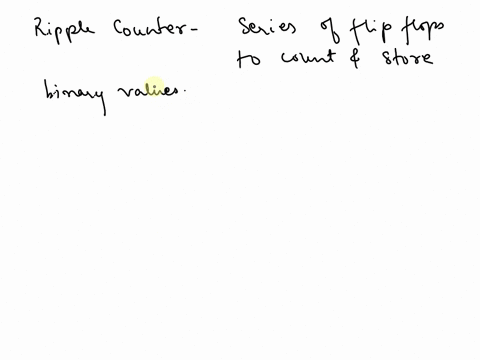 Ripple Counter - Series of flip flops
to count & store
binary values.